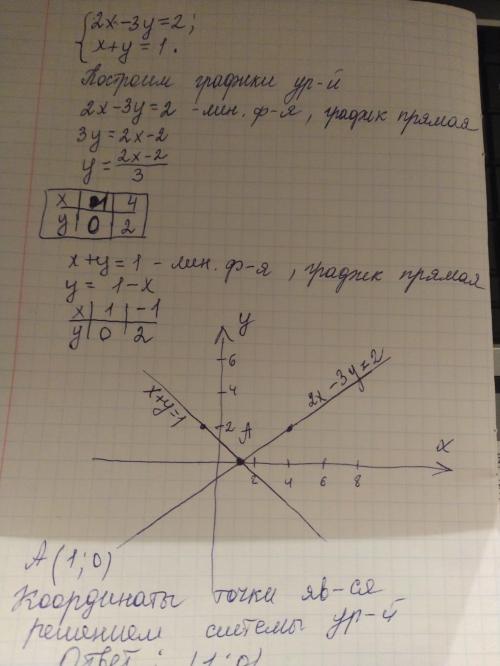 2x-3y=2;
x+y=1.
Построим графики ур-й
2x-3y=2 -лин. ф-я, график прямая
3y=2x-2
y=2x-2/3
x | 1 | 4
y | 0 | 2
x+y=1 - лин. ф-я, график прямая
y= 1-x
x | 1 | -1
y | 0 | 2
y
6
4
2
x+y=1
A
2x-3y=2
x
2 4 6 8
A(1;0)
Координаты точки яв-ся
решением системы ур-й
Ответ: (1;0)